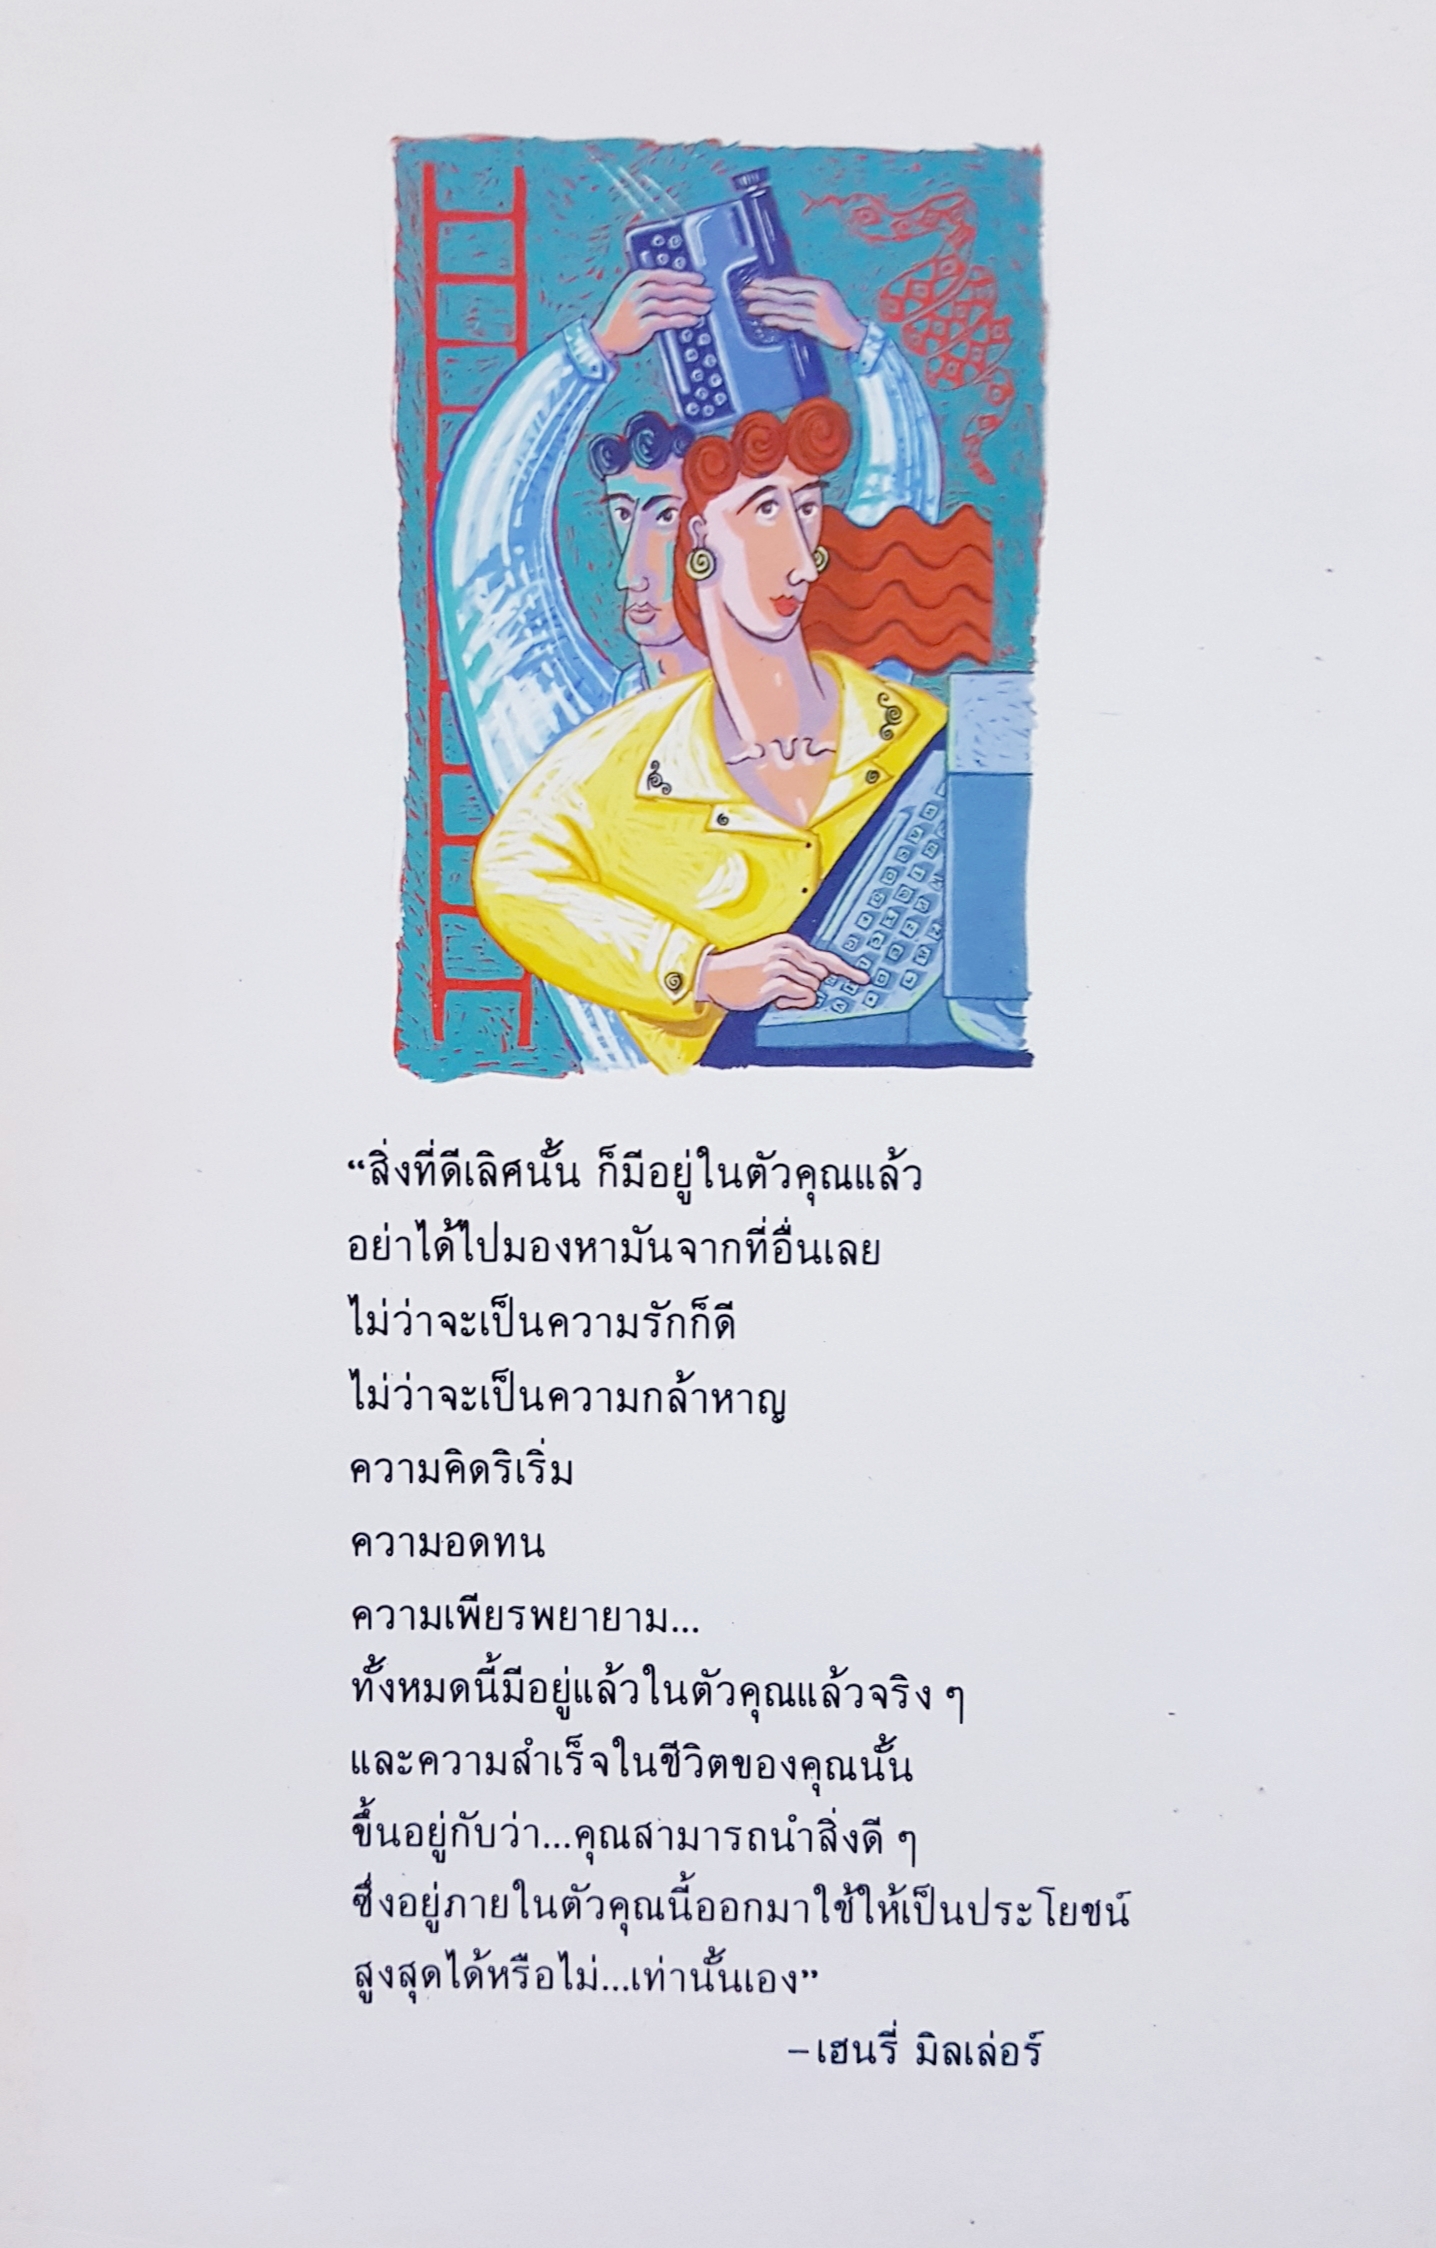 “สิ่งที่ดีเลิศนั้น ก็มีอยู่ในตัวคุณแล้ว
อย่าได้ไปมองหามันจากที่อื่นเลย
ไม่ว่าจะเป็นความรักก็ดี
ไม่ว่าจะเป็นความกล้าหาญ
ความคิดริเริ่ม
ความอดทน
ความเพียรพยายาม...
ทั้งหมดนี้มีอยู่แล้วในตัวคุณแล้วจริง ๆ
และความสำเร็จในชีวิตของคุณนั้น
ขึ้นอยู่กับว่า...คุณสามารถนำสิ่งดี ๆ
ซึ่งอยู่ภายในตัวคุณนี้ออกมาใช้ให้เป็นประโยชน์
สูงสุดได้หรือไม่...เท่านั้นเอง”
–เฮนรี่ มิลเล่อร์